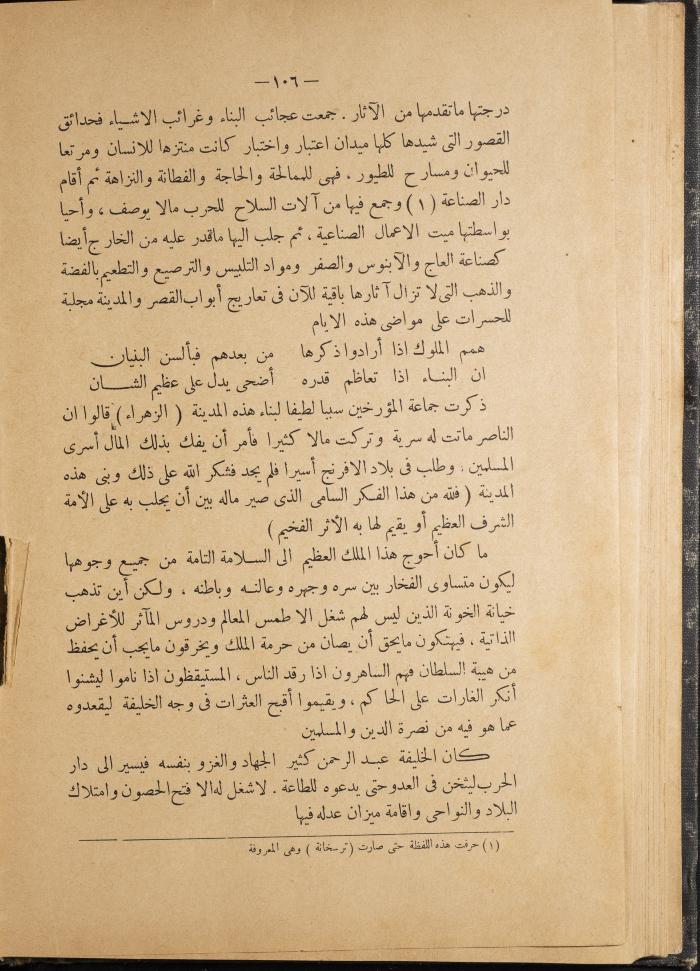 — ١٠٦ —
درجتها ماتقدمها من الآثار . جمعت عجائب البناء وغرائب الاشياء فحدائق
القصور التى شيدها كلها ميدان اعتبار واختبار كانت منتزها للانسان ومرتعا
للحيوان ومسارح للطيور ، فهى للممالحة والحاجة والفطانة والنزاهة ثم أقام
دار الصناعة (١) وجمع فيها من آلات السلاح للحرب مالا يوصف ، وأحيا
بواسطتها ميت الاعمال الصناعية ، ثم جلب اليها ماقدر عليه من الخارج أيضا
كصناعة العاج والآبنوس والصفر ومواد التلبيس والترصيع والتطعيم بالفضة
والذهب التى لا تزال آثارها باقية للآن فى تعاريج أبواب القصر والمدينة مجلبة
للحسرات على مواضى هذه الايام
همم الملوك اذا أرادوا ذكرها من بعدهم فبألسن البنيان
ان البناء اذا تعاظم قدره أضحى يدل على عظيم الشان
ذكرت جماعة المؤرخين سببا لطيفا لبناء هذه المدينة ( الزهراء ) قالوا ان
الناصر ماتت له سرية وتركت مالا كثيرا فأمر أن يفك بذلك المال أسرى
المسلمين ، وطلب فى بلاد الافرنج أسيرا فلم يجد فشكر الله على ذلك وبنى هذه
المدينة ( فلله من هذا الفكر السامى الذى صير ماله بين أن يجلب به على الأمة
الشرف العظيم أو يقيم لها به الأثر الفخيم )
ما كان أحوج هذا الملك العظيم الى السلامة التامة من جميع وجوهها
ليكون متساوى الفخار بين سره وجهره وعالنه وباطنه ، ولكن أين تذهب
خيانة الخونة الذين ليس لهم شغل الا طمس المعالم ودروس المآثر للأغراض
الذاتية ، فيهتكون مايحق أن يصان من حرمة الملك ويخرقون مايجب أن يحفظ
من هيبة السلطان فهم الساهرون اذا رقد الناس ، المستيقظون اذا ناموا ليشنوا
أنكر الغارات على الحاكم ، ويقيموا أقبح العثرات فى وجه الخليفة ليقعدوه
عما هو فيه من نصرة الدين والمسلمين
كان الخليفة عبد الرحمن كثير الجهاد والغزو بنفسه فيسير الى دار
الحرب ليثخن فى العدو حتى يدعوه للطاعة . لا شغل له الا فتح الحصون وامتلاك
البلاد والنواحى واقامة ميزان عدله فيها
(١) حرفت هذه اللفظة حتى صارت (ترسخانة ) وهى المعروفة